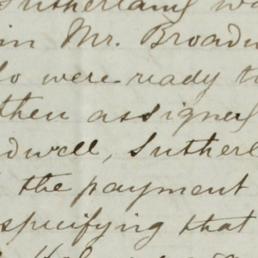 Sutherland
in Mr. Broad
were ready
then assigned
dwell, Suther
the payment
specifying that